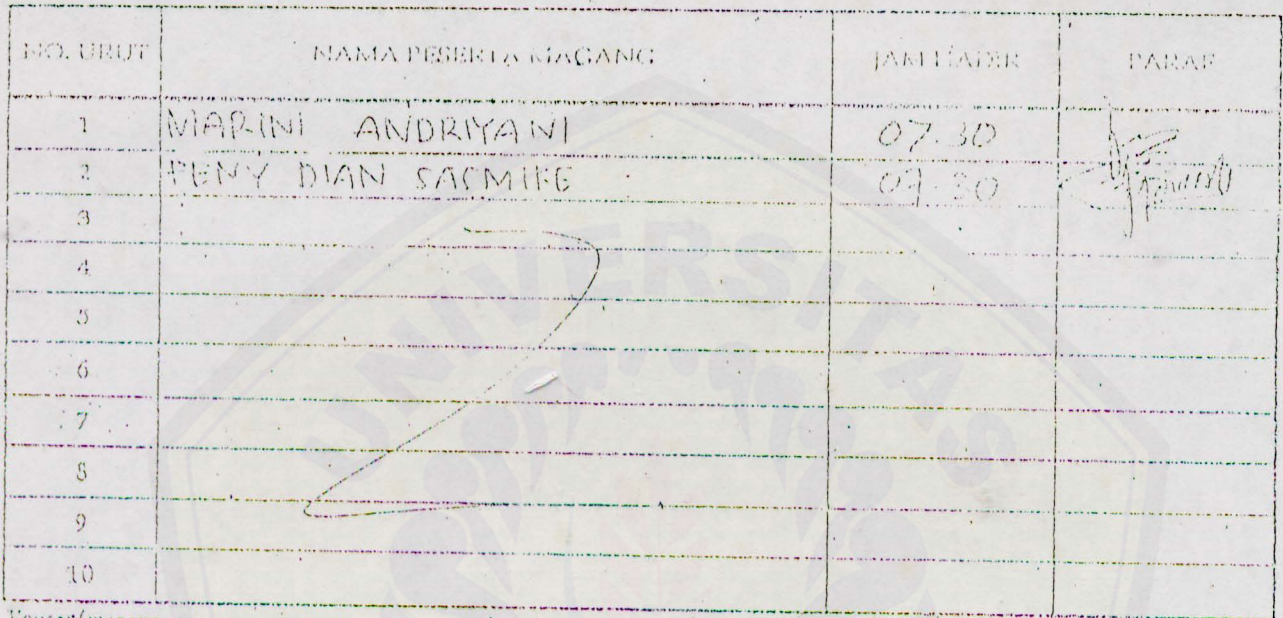 NO. URUT NAMA PESERTA MAGANG JAM HADIR PARAF
1 MARINI ANDRIYANI 07.30
2 PENY DIAN SASMIKE 07.30
3
4
5
6
7
8
9
10
UNIVERSITAS